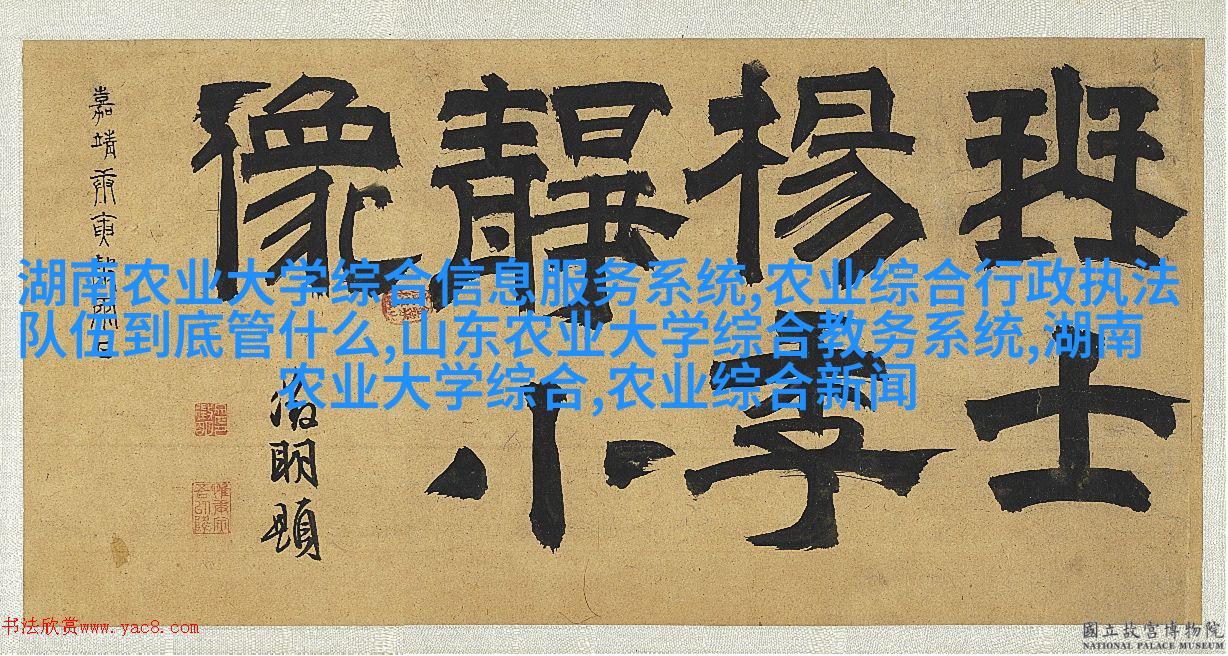 湖南农业大学综合信息服务系统,农业综合行政执法
队伍到底管什么,山东农业大学综合教务系统,湖南
农业大学综合,农业综合新闻
琴士
楊季
靜小
像
徵明題
嘉靖庚寅
书法欣赏www.yac8.com
國立故宮博物院
NATIONAL PALACE MUSEUM